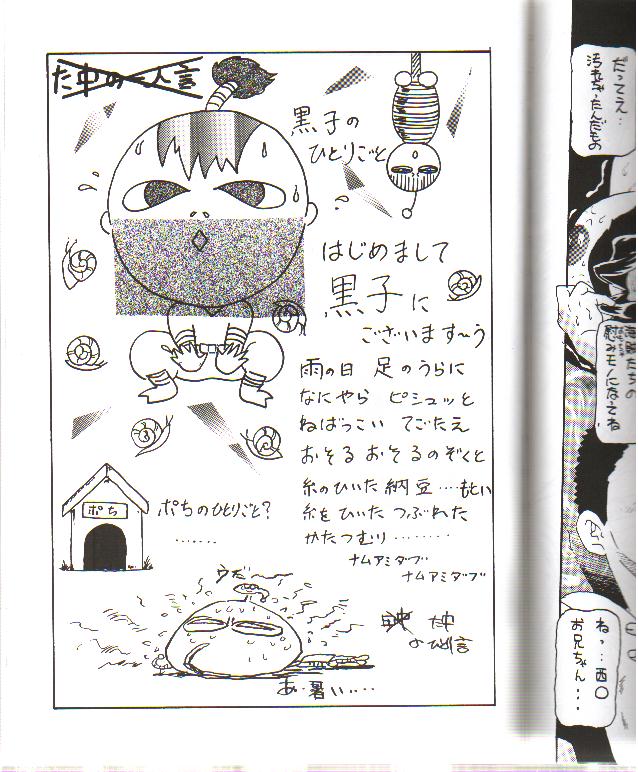 た中の一人言
黒子の
ひとりごと
はじめまして
黒子に
ございます〜う
雨の日 足のうらに
なにやら ピシュッと
ねばっこい てごたえ
おそる おそるのぞくと
糸のひいた 納豆‥‥もとい
糸をひいた つぶれた
かたつむり‥‥‥‥
ナムアミダブ
ナムアミダブ
ポち
ポちのひとりごと?
‥‥‥
うだ〜
た中
のひと言
あ・暑い‥‥
だってえ‥
汚れちゃったんだもの
達の
慰みモノになってね
ねっ‥西○
お兄ちゃん‥‥